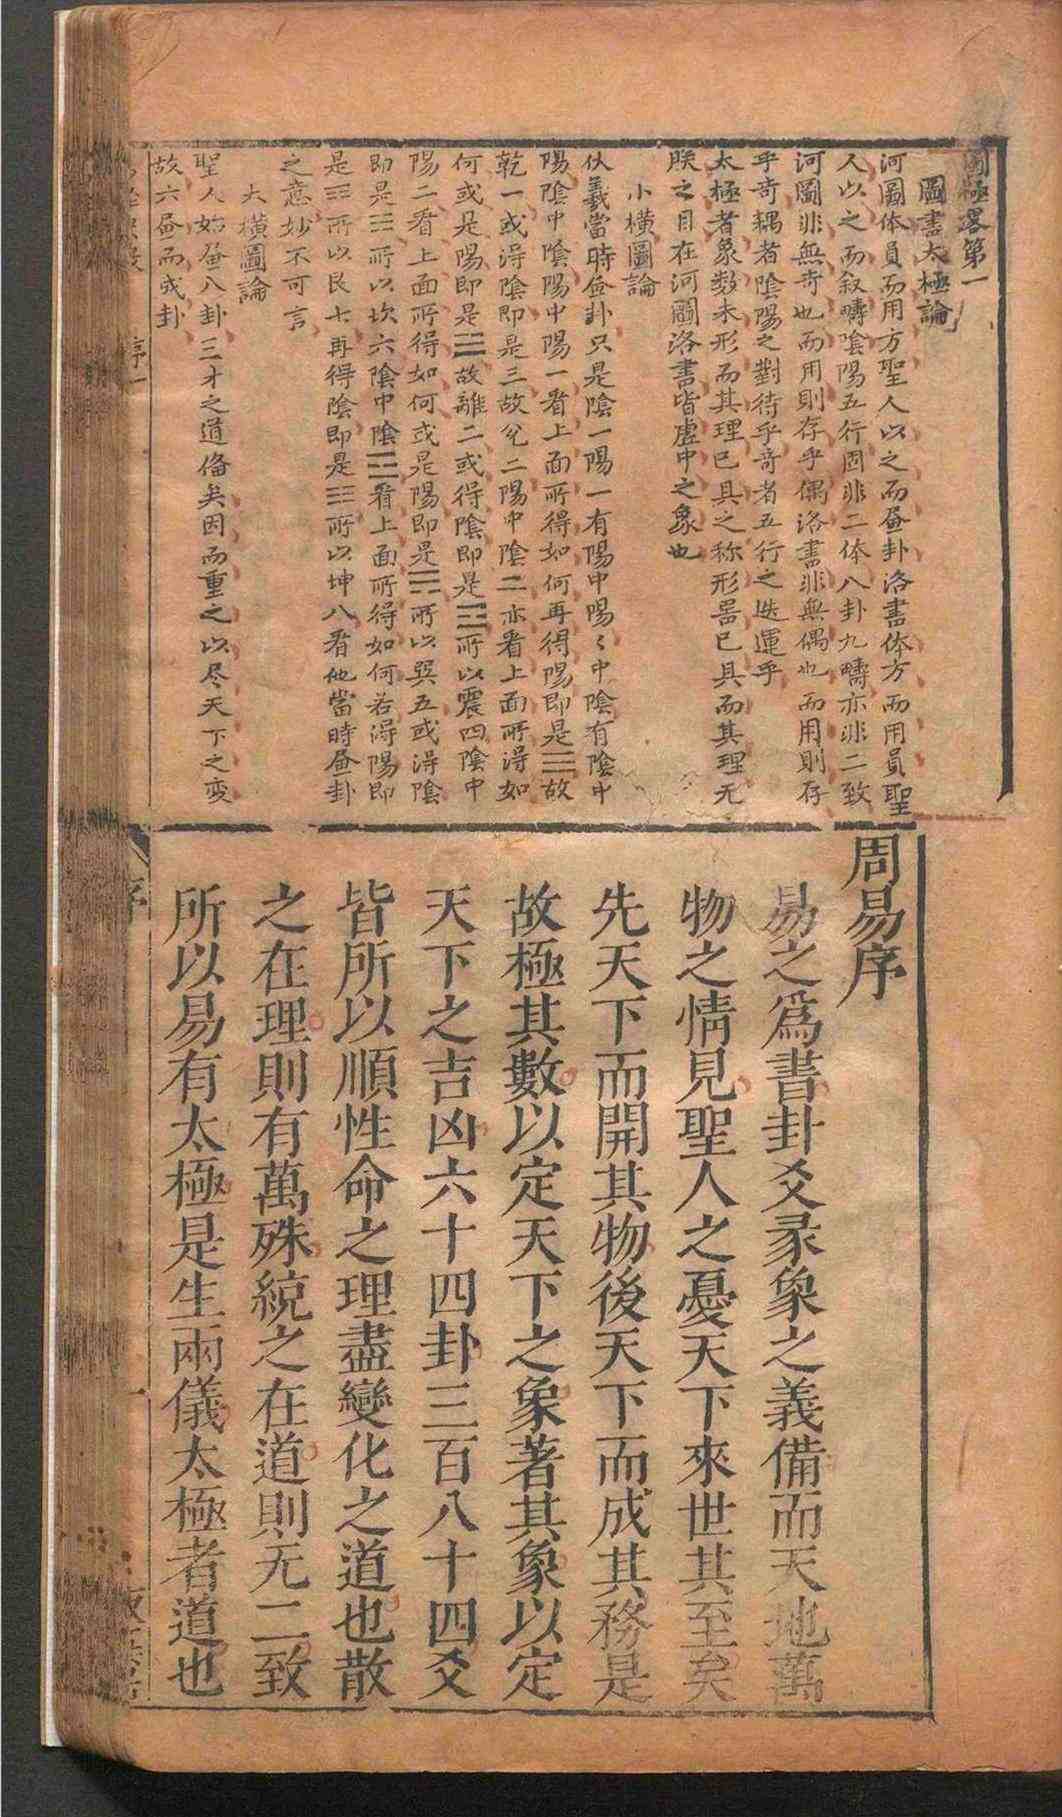 圖極畧第一
圖書太極論
河圖体員而用方聖人以之而畫卦洛書体方而用員聖
人以之而叙疇陰陽五行固非二体八卦九疇亦非二致
河圖非無奇也而用則存乎偶洛書非無偶也而用則存
乎奇耦者陰陽之對待乎奇者五行之迭運乎
太極者象数未形而其理已具之称形器已具而其理无
朕之目在河圖洛書皆虚中之象也
小橫圖論
伏羲當時畫卦只是陰一陽一有陽中陽〻中陰有陰中
陽陰中陰陽中陽一看上面所得如何再得陽即是☰故
乾一或得陰即是☱故兌二陽中陰二亦看上面所得如
何或是陽即是☲故離二或得陰即是☳所以震四陰中
陽二看上面所得如何或是陽即是☴所以巽五或得陰
即是☵所以坎六陰中陰☷看上面所得如何若得陽即
是☶所以艮七再得陰即是☷所以坤八看他當時畫卦
之意妙不可言
大橫圖論
聖人始畫八卦三才之道備矣因而重之以尽天下之变
故六畫而成卦
序一
周易序
易之爲書卦爻彖象之義備而天地萬
物之情見聖人之憂天下來世其至矣
先天下而開其物後天下而成其務是
故極其數以定天下之象著其象以定
天下之吉凶六十四卦三百八十四爻
皆所以順性命之理盡變化之道也散
之在理則有萬殊統之在道則无二致
所以易有太極是生兩儀太極者道也
序
一